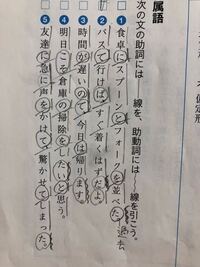 属語
次の文の助詞には――線を、助動詞には～～線を引こう。
1 食卓にスプーンとフォークを並べた。
過去
2 バスで行けば、すぐ着くはずだよ。
3 時間が遅いので、今日は帰ります。
4 明日こそ倉庫の掃除をしたいと思う。
5 友達に急に声をかけて、驚かせてしまった。